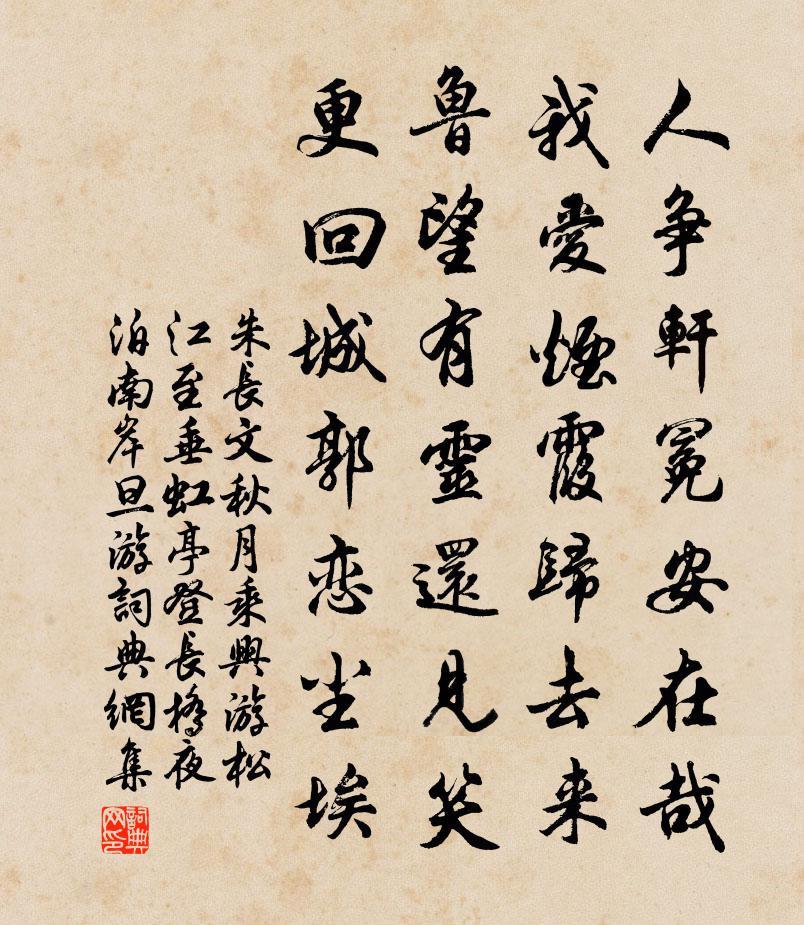 人争軒冕安在哉
我愛煙霞歸去来
魯望有靈還見笑
更回城郭恋尘埃
朱長文秋月乘興游松
江至垂虹亭登長橋夜
泊南岸旦游詞典網集
詞典网印